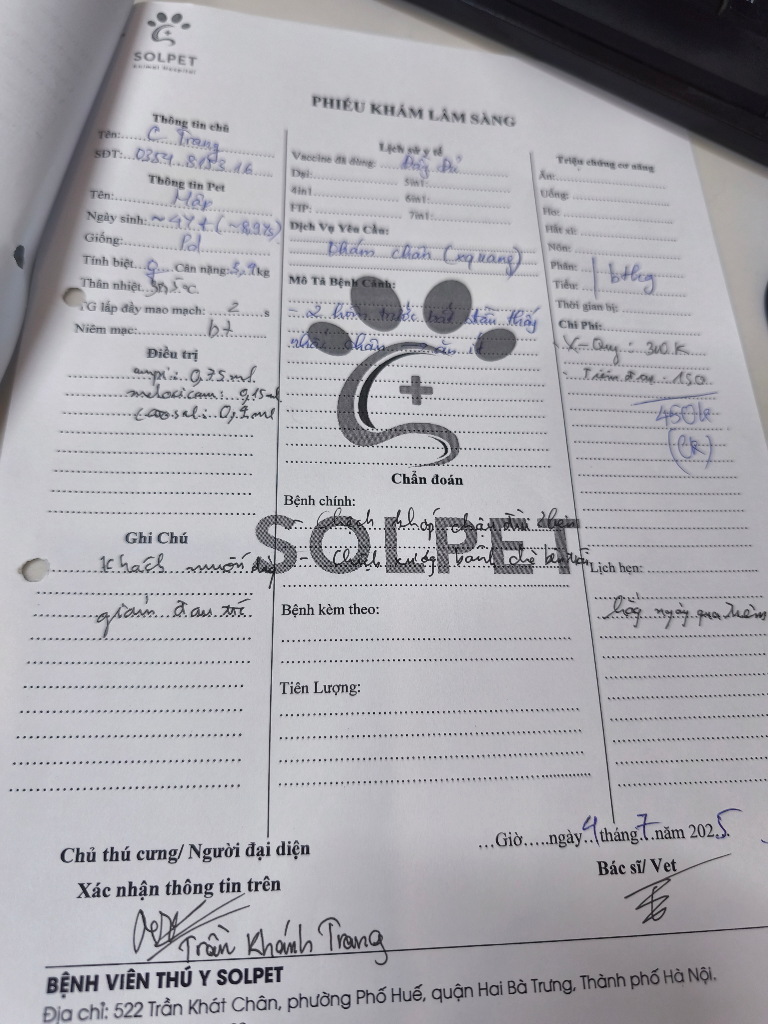 SOLPET
Animal Hospital
PHIẾU KHÁM LÂM SÀNG
Thông tin chủ
Tên: C Trang
SĐT: 0354 8153 16
Thông tin Pet
Tên:
Ngày sinh:
Giống: Pd
Tính biệt Cân nặng: 3,9kg
Thân nhiệt °C
TG lấp đầy mao mạch: 2 s
Niêm mạc: bt
Điều trị
ampi: 0,75ml
meloxicam: 0,15ml
Ghi Chú
Khách muốn
giảm đau trc
Lịch sử y tế
Vaccine đã dùng: Đầy Đủ
Dại: 5in1:
4in1 6in1:
FIP: 7in1:
Dịch Vụ Yêu Cầu:
khám chân (xquang)
Mô Tả Bệnh Cảnh:
- 2 hôm trước bắt đầu thấy
chân
Chẩn đoán
Bệnh chính:
SOLPET
Bệnh kèm theo:
Tiên Lượng:
Triệu chứng cơ năng
Ăn:
Uống:
Ho:
Hắt xì:
Nôn:
Phân:
Tiểu:
Thời gian bị:
Chi Phí:
X-Quy: 300K
Tiêm đau: 150
450k
(CK)
Lịch hẹn:
ngày qua tiêm
Chủ thú cưng/ Người đại diện
Xác nhận thông tin trên
Trần Khánh Trang
...Giờ.....ngày 4 tháng 7 năm 2025
Bác sĩ/ Vet
BỆNH VIÊN THÚ Y SOLPET
Địa chỉ: 522 Trần Khát Chân, phường Phố Huế, quận Hai Bà Trưng, Thành phố Hà Nội.